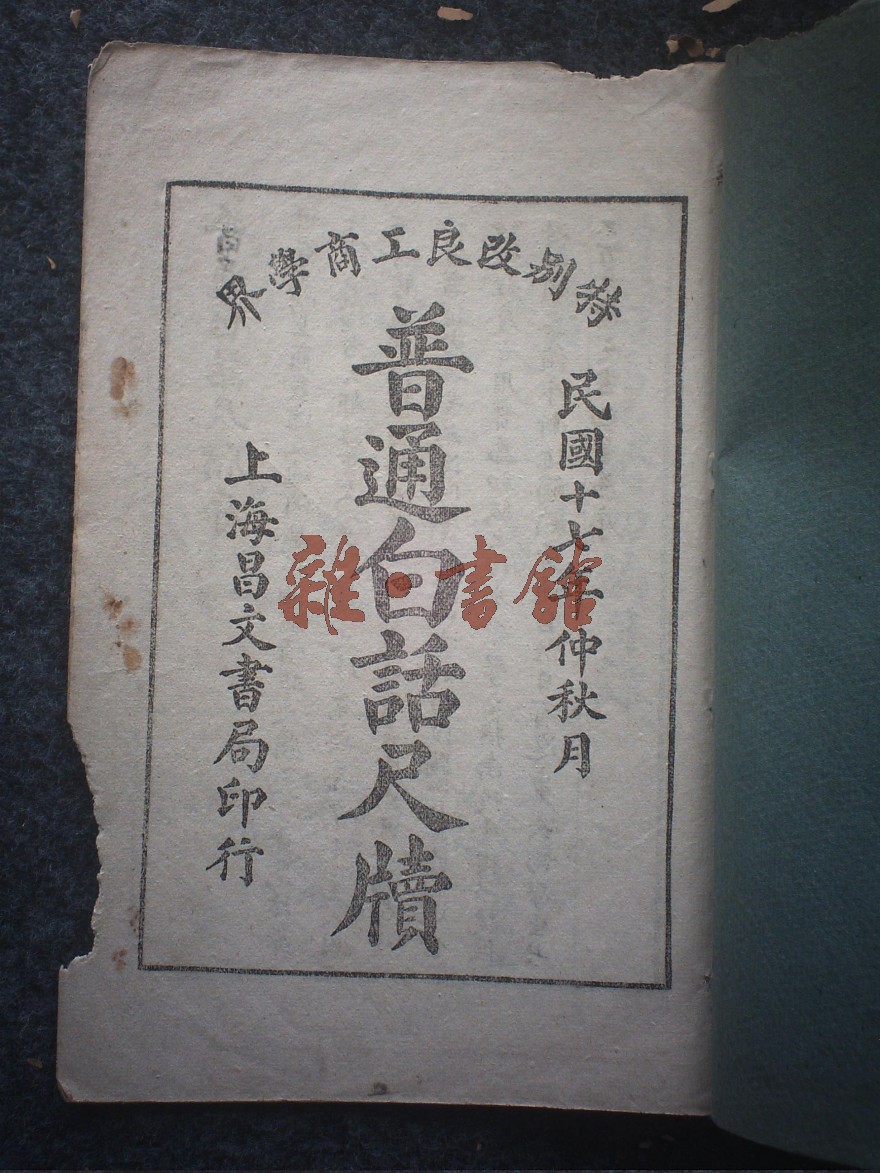 特別改良工商學界
民國十年仲秋月
普通白話尺牘
上海昌文書局印行
雜·書館